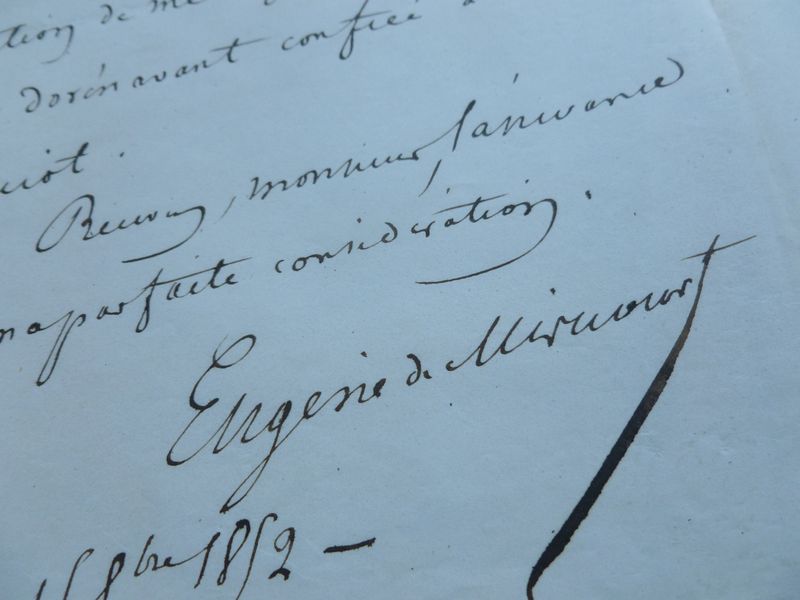 tion de me
dorénavant confiée à
Recevez, monsieur, l'assurance
ma parfaite considération.
Eugène de Mirecourt
15 8bre 1852 –